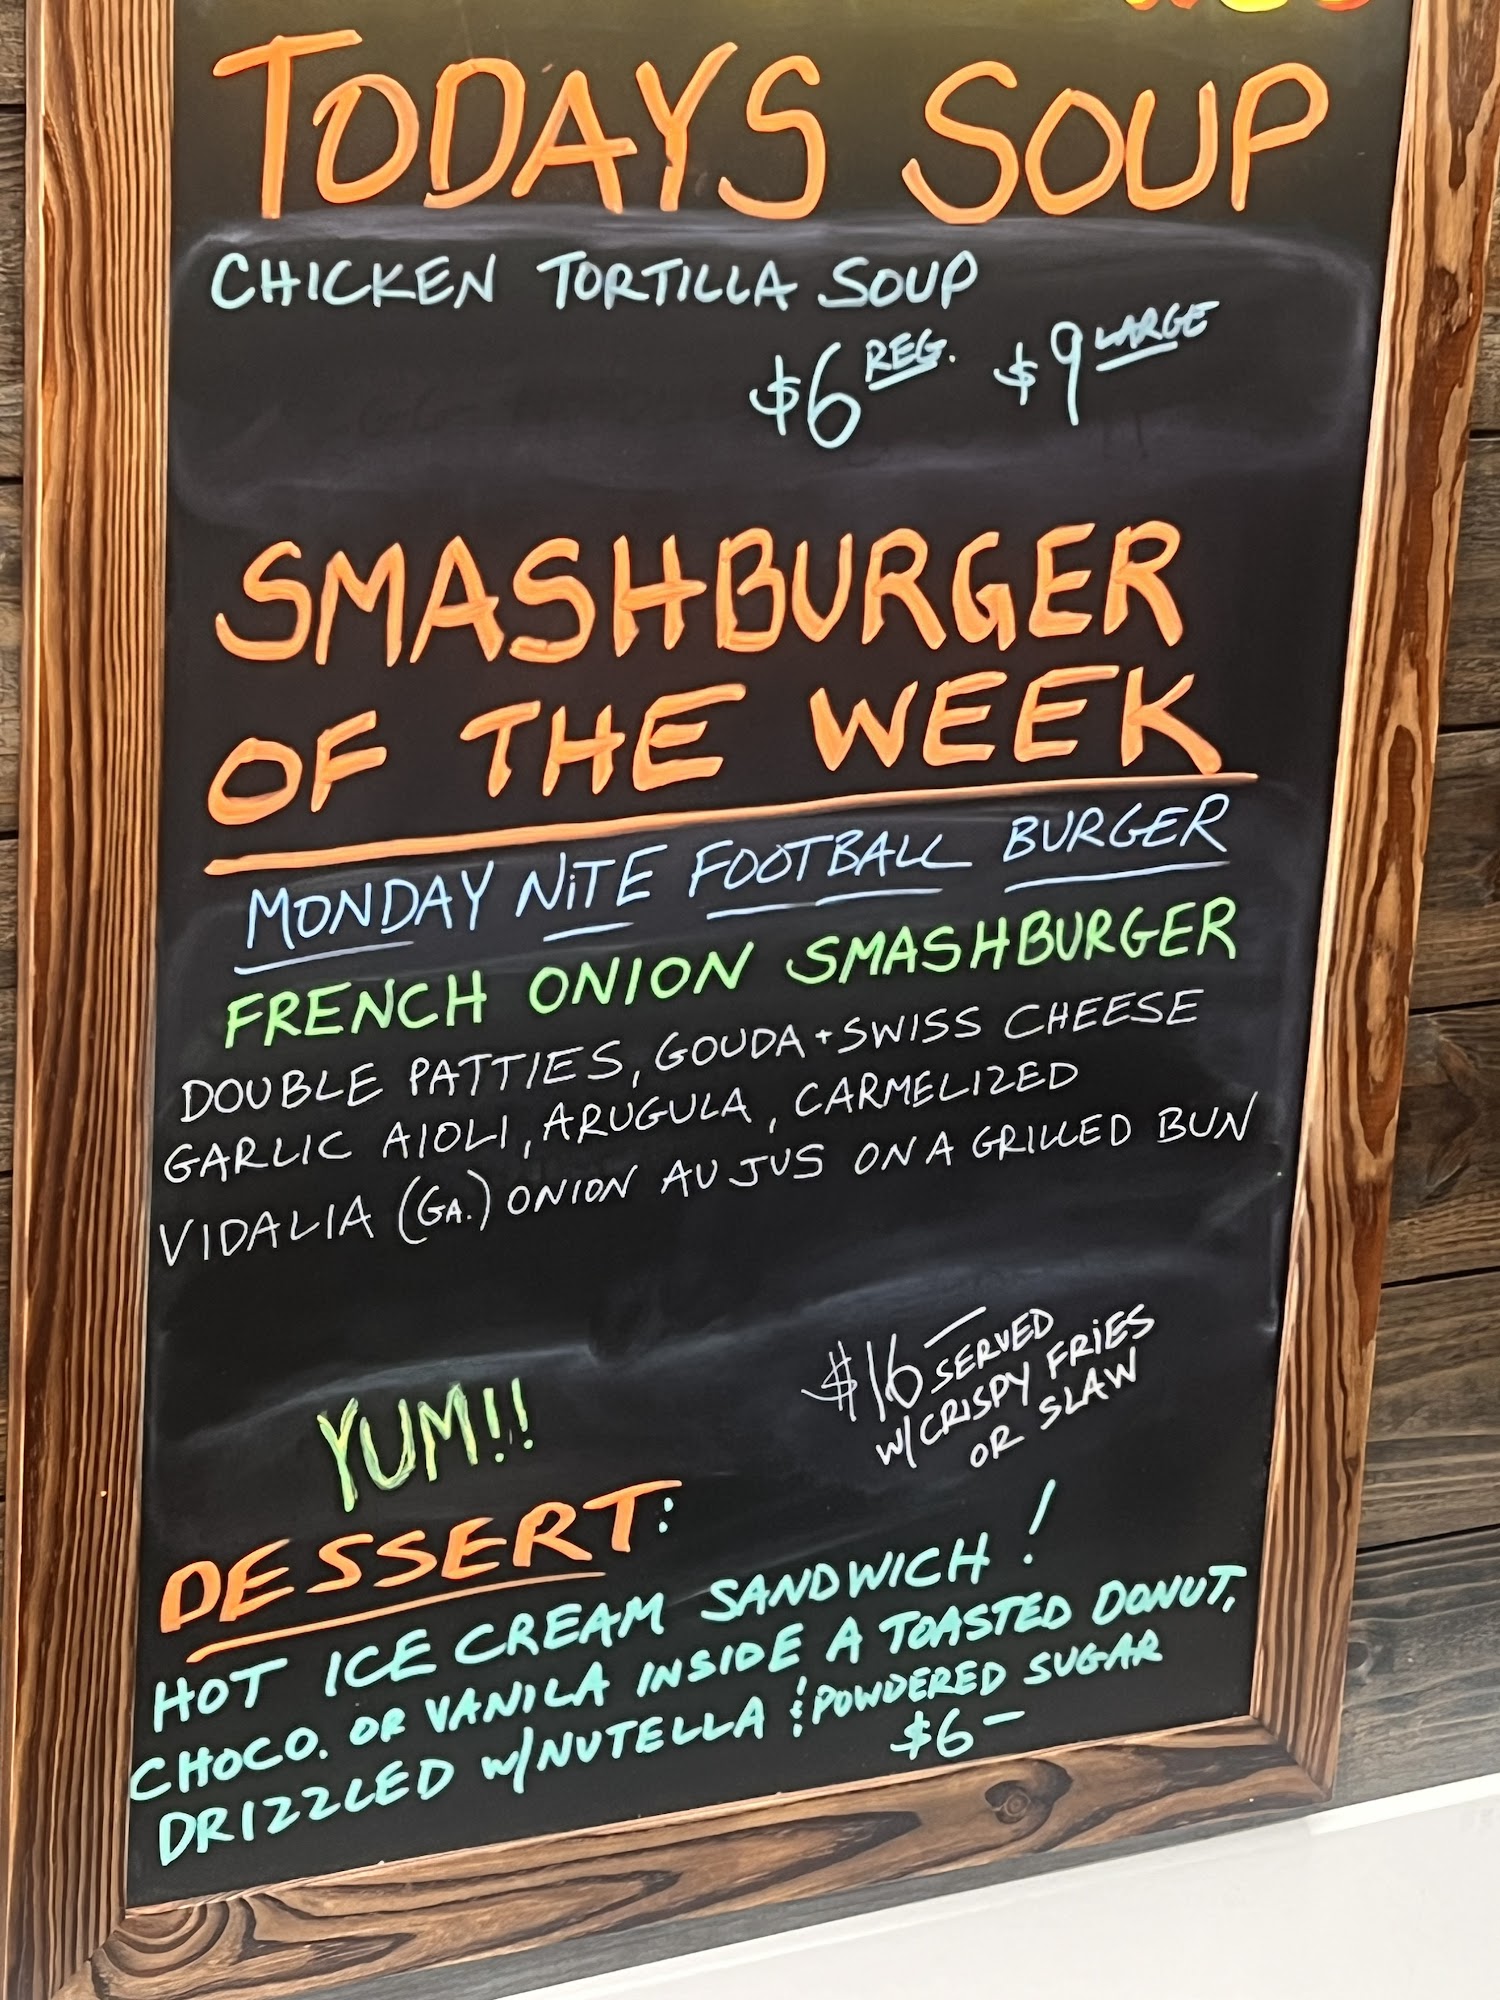 TODAYS SOUP
CHICKEN TORTILLA SOUP
$6 REG. $9 LARGE
SMASHBURGER
OF THE WEEK
MONDAY NiTE FOOTBALL BURGER
FRENCH ONION SMASHBURGER
DOUBLE PATTIES, GOUDA + SWISS CHEESE
GARLIC AIOLI, ARUGULA, CARMELIZED
VIDALIA (GA.) ONION AU JUS ON A GRILLED BUN
$16 — SERVED
W/CRISPY FRiES
OR SLAW
YUM!!
DESSERT:
HOT ICE CREAM SANDWICH!
CHOCO. OR VANILA INSIDE A TOASTED DONUT,
DRIZZLED W/NUTELLA & POWDERED SUGAR
$6 —